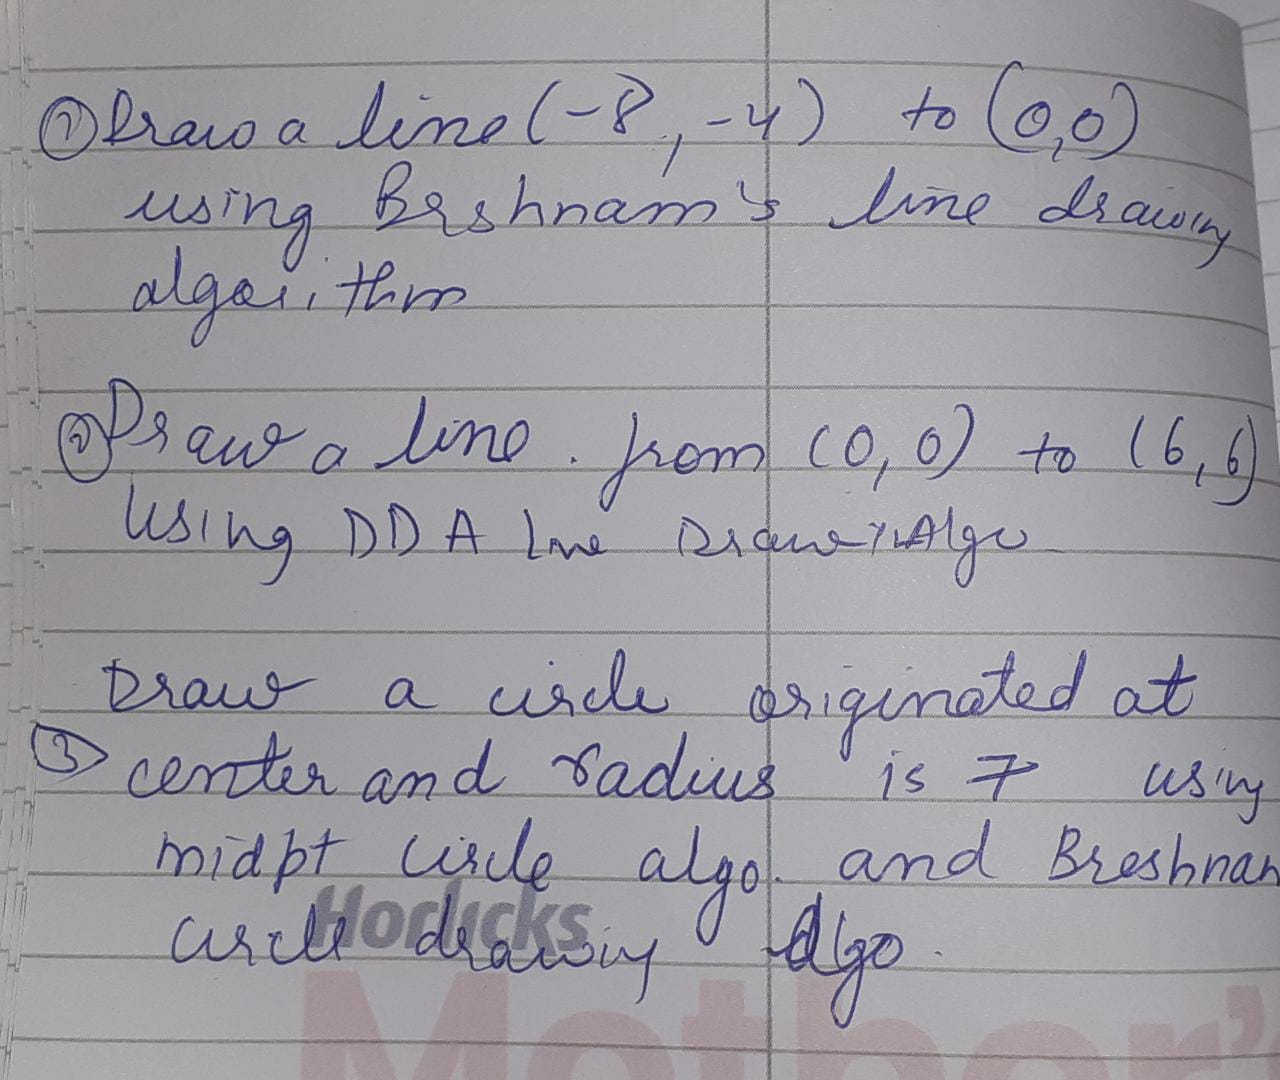 ① Draw a line (-8, -4) to (0,0)
using Breshnam's line drawing
algorithm
② Draw a line. from (0,0) to (6,6)
Using DDA Line Algo
Draw a circle originated at
③ center and radius is 7 using
midpt circle algo. and Breshnam
circle drawing Algo.
Horlicks
Mother's